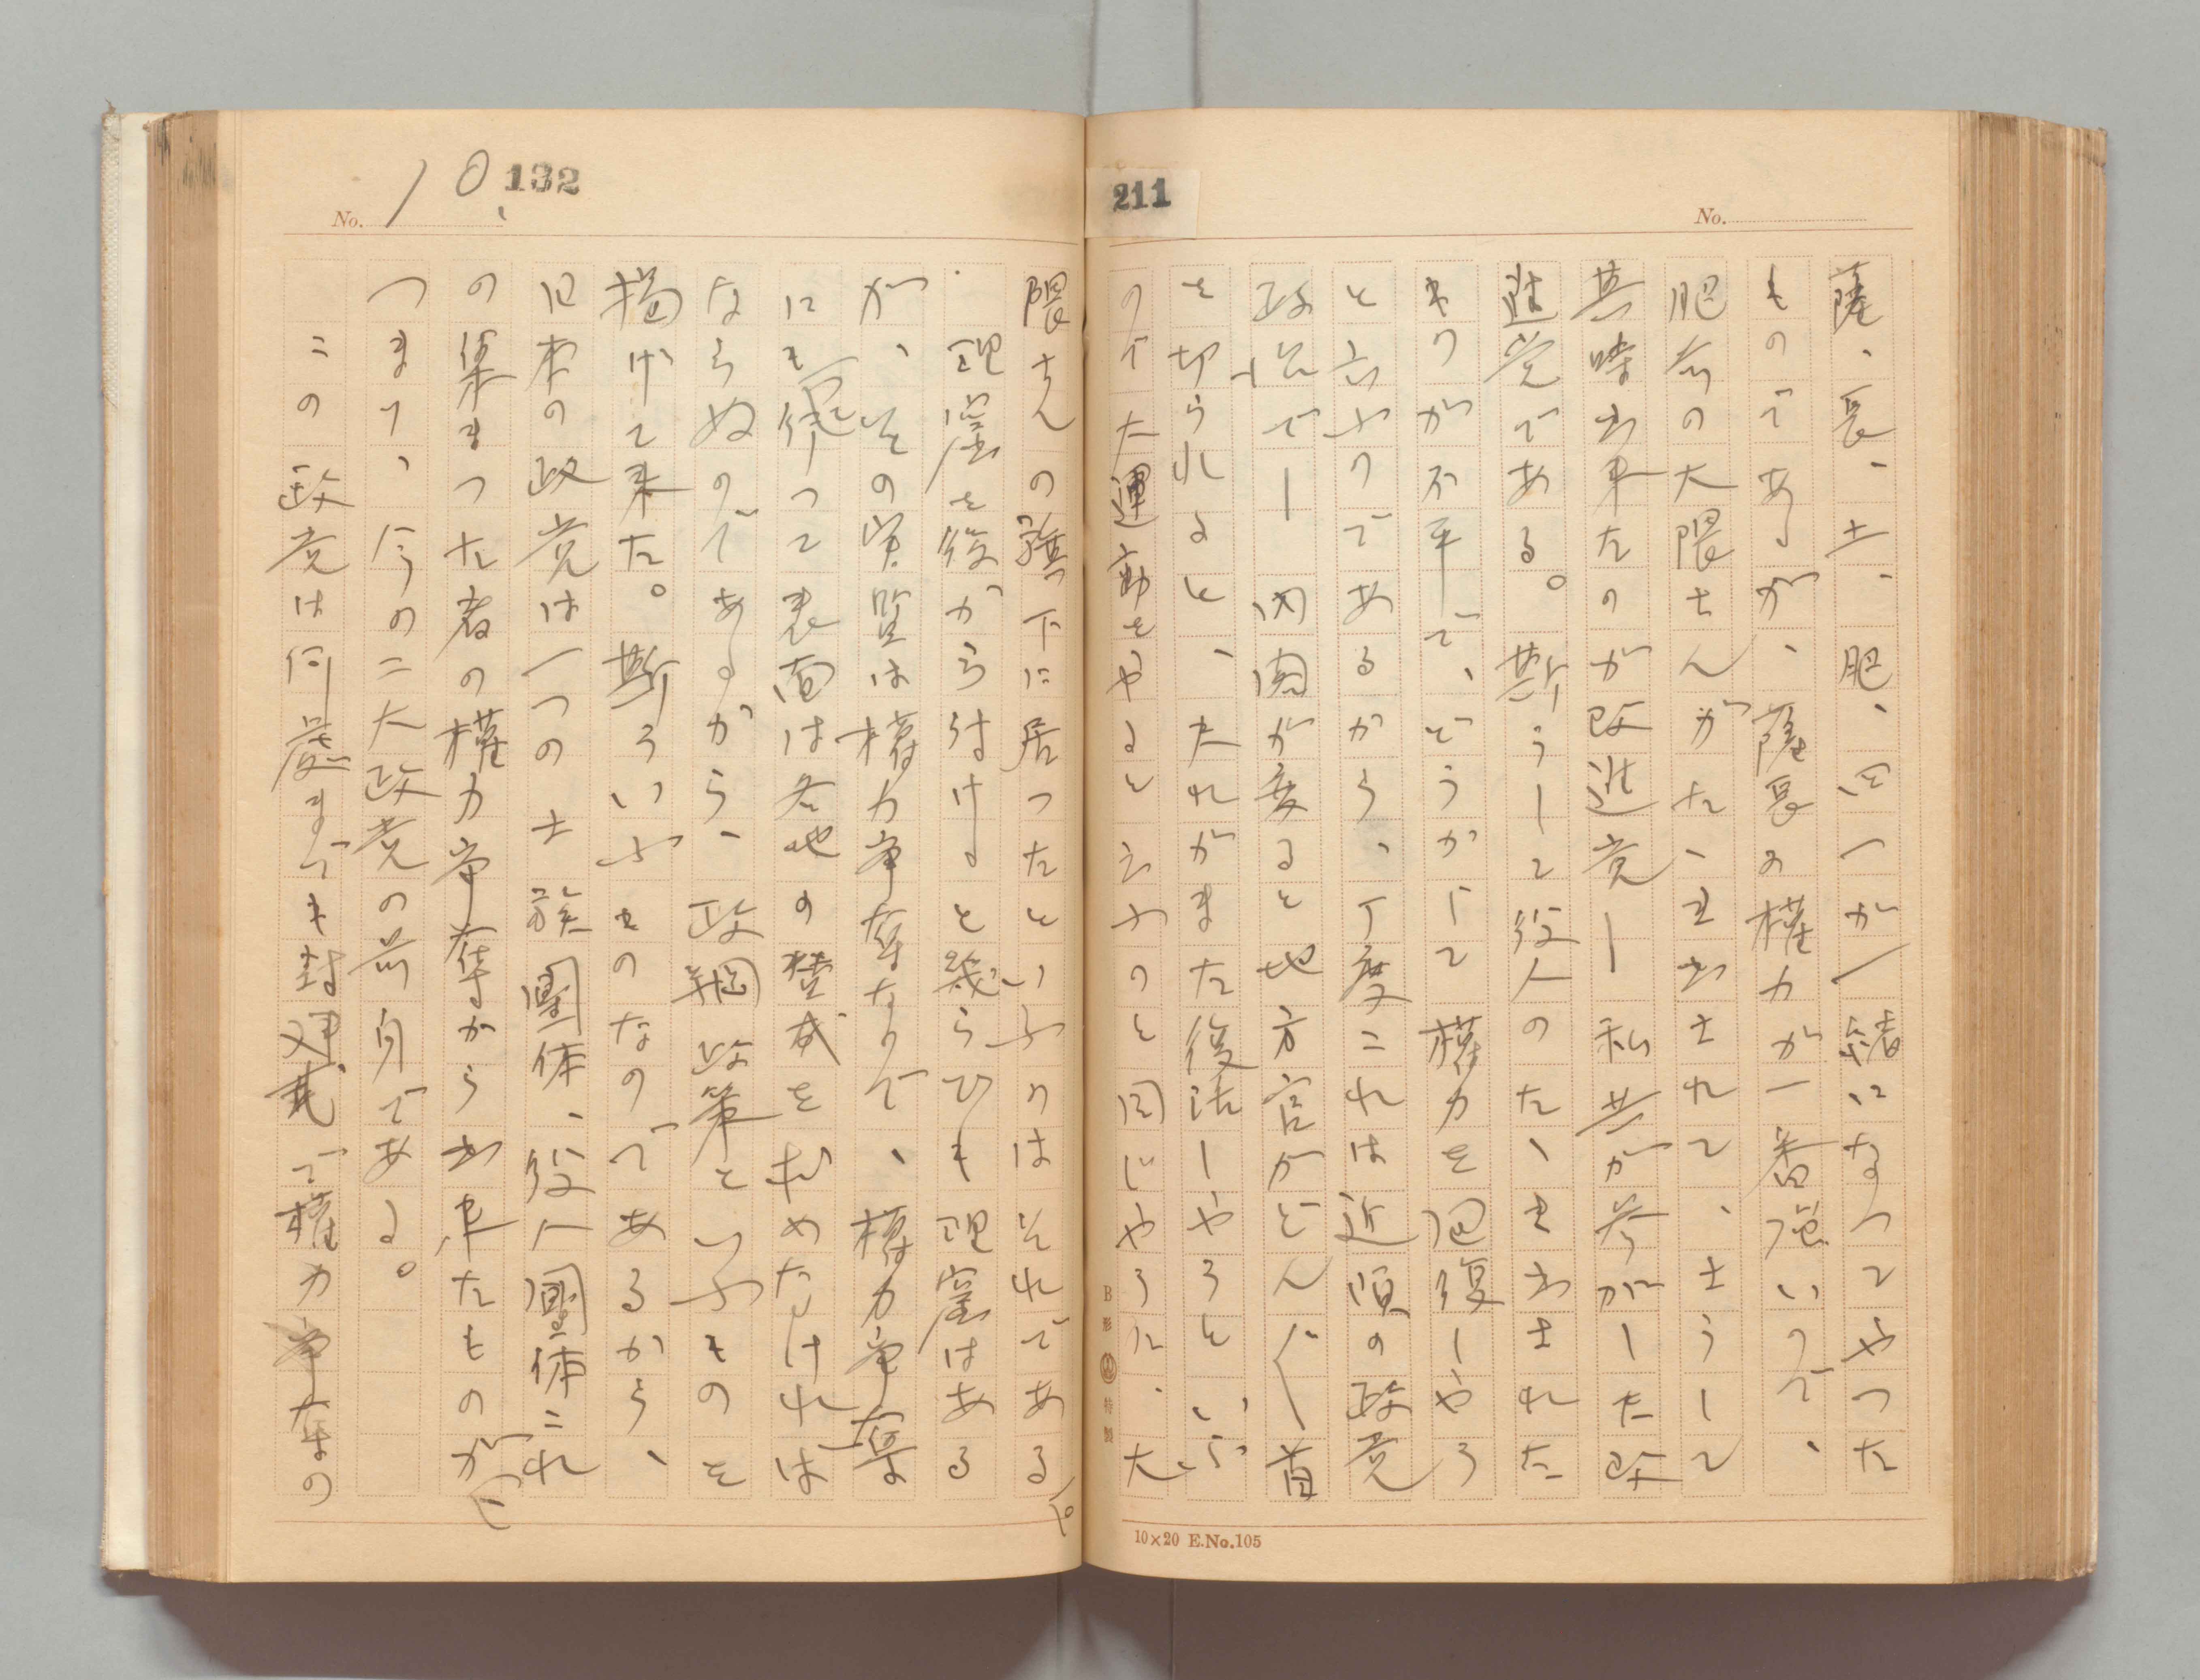 211
No.
薩、長、土、肥、四つが一緒になつてやつた
ものであるが、薩長の権力が一番強いので、
肥前の大隈さんがたゝき出されて、さうして
其時出来たのが改進党ー私共が参加した改
進党である。斯うして役人のたゝき出された
許りが不平で、どうかして権力を回復しやう
と云ふのであるから、丁度これは近頃の政党
政治でー内閣が変ると地方官がどん〱首
を切られると、夫れがまた復活しやうといふ
ので運動をやると云ふのと同じやうに、大
B形 特製
10×20 E.No.105
132
No. 10、
隈さんの旗下に居つたといふのはそれである
理窟を後から付けると幾らひも理窟はある
が、その実質は権力争奪なので、権力争奪
にも従つて表面は各地の賛成を求めなければ
ならぬのであるから、政綱政策といふものを
掲げて来た。斯ういふものなのであるから、
旧本の政党は一つの士族團体、役人團体これ
の集まつた者の権力争奪から出来たものが
つまり、今の二大政党の前身である。
この政党は何處までも封建式で権力争奪の